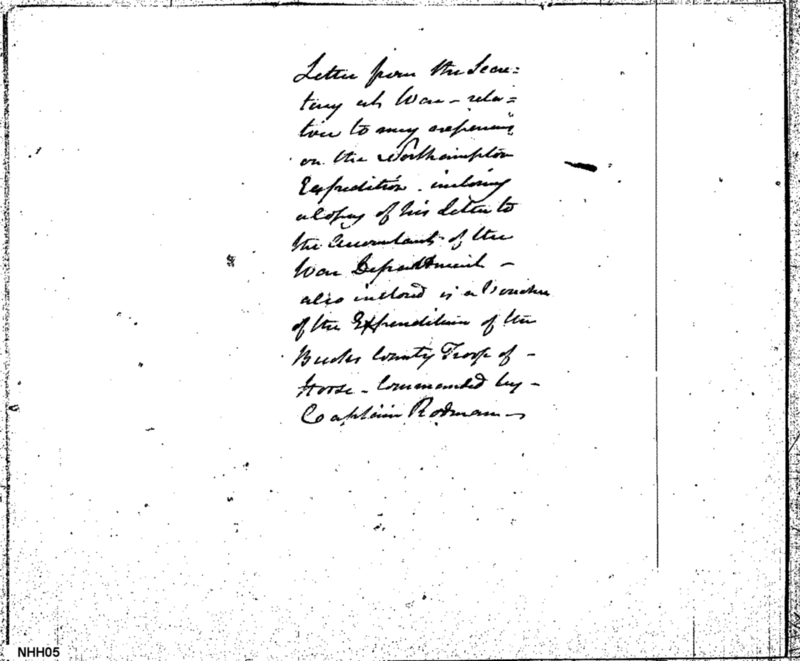 Letter from the Secre=
tary at War - rela=
tive to my expenses
on the Northampton
Expedition. inclosing
a Copy of his Letter to
the Accountant of the
War Department -
also inclosed is a Voucher
of the Expenditure of the
Bucks County Troop of -
Horse - Commanded by -
Captain Rodman -
NHH05